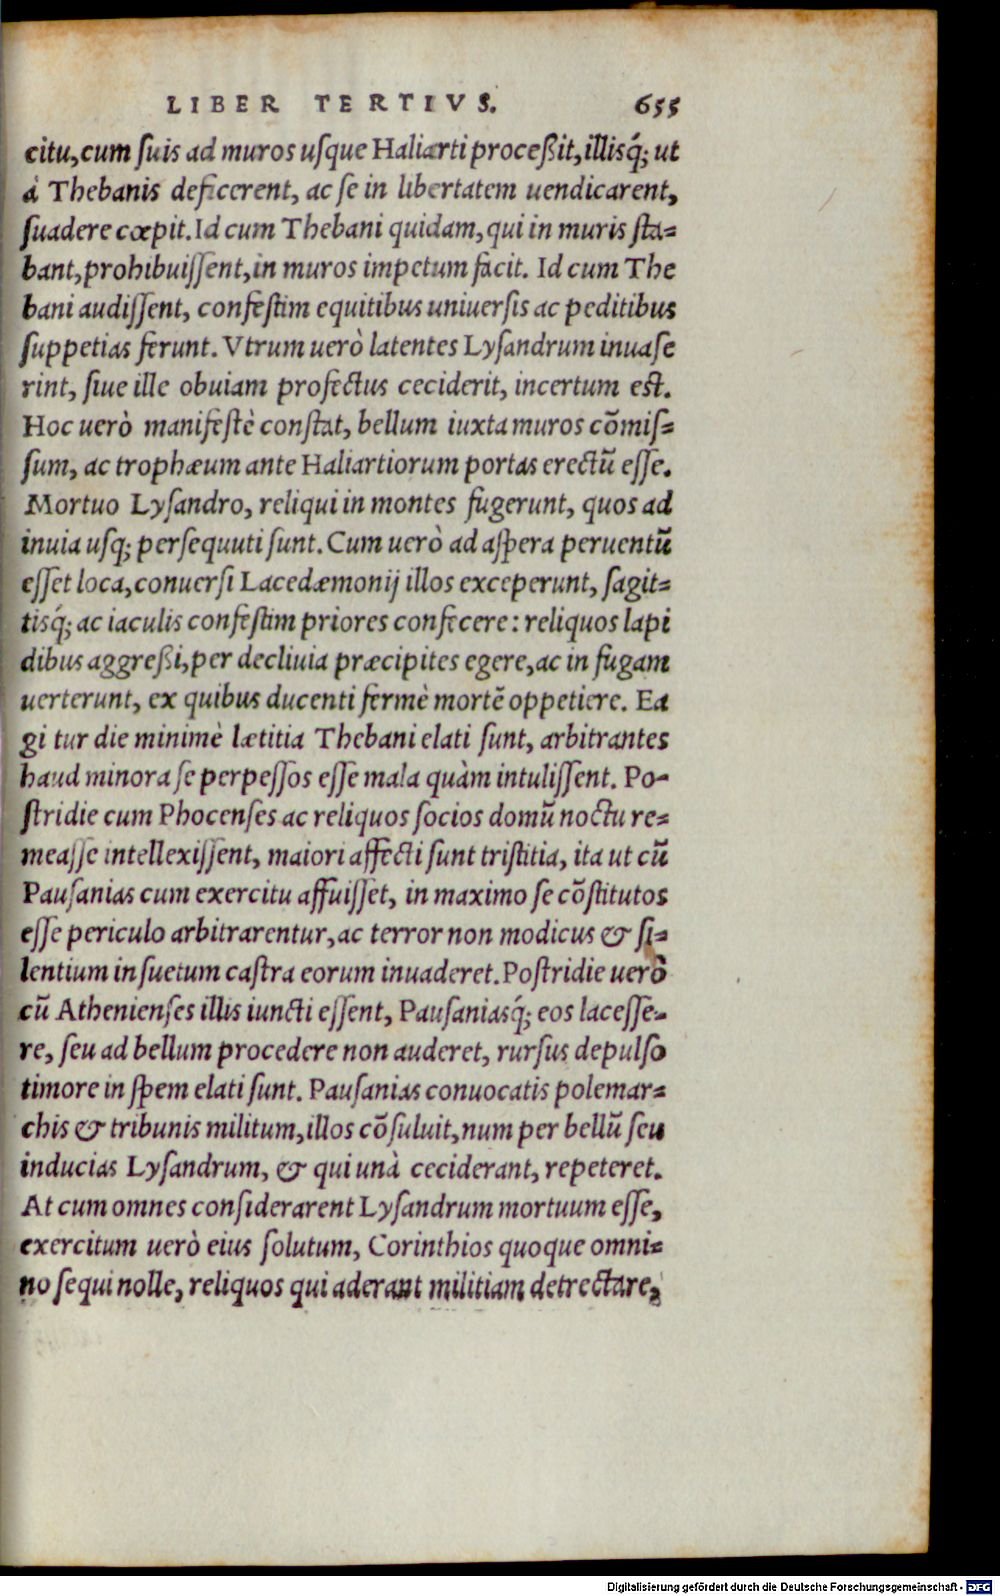 LIBER TERTIVS. 655
citu, cum ſuis ad muros uſque Haliarti proceßit, illisq́; ut
à Thebanis deficerent, ac ſe in libertatem uendicarent,
ſuadere cœpit. Id cum Thebani quidam, qui in muris ſta=
bant, prohibuiſſent, in muros impetum facit. Id cum The
bani audiſſent, confeſtim equitibus uniuerſis ac peditibus
ſuppetias ferunt. Vtrum uerò latentes Lyſandrum inuaſe
rint, ſiue ille obuiam profectus ceciderit, incertum eſt.
Hoc uerò manifeſtè conſtat, bellum iuxta muros cõmiſ=
ſum, ac trophæum ante Haliartiorum portas erectũ eſſe.
Mortuo Lyſandro, reliqui in montes fugerunt, quos ad
inuia uſq; perſequuti ſunt. Cum uerò ad aſpera peruentũ
eſſet loca, conuerſi Lacedæmonij illos exceperunt, ſagit=
tisq́; ac iaculis confeſtim priores confecere: reliquos lapi
dibus aggreßi, per decliuia præcipites egere, ac in fugam
uerterunt, ex quibus ducenti fermè mortẽ oppetiere. Ea
gi tur die minimè lætitia Thebani elati ſunt, arbitrantes
haud minora ſe perpeſſos eſſe mala quàm intuliſſent. Po=
ſtridie cum Phocenſes ac reliquos ſocios domũ noctu re=
meaſſe intellexiſſent, maiori affecti ſunt triſtitia, ita ut cũ
Pauſanias cum exercitu affuiſſet, in maximo ſe cõſtitutos
eſſe periculo arbitrarentur, ac terror non modicus & ſi=
lentium inſuetum caſtra eorum inuaderet. Poſtridie uerò
cũ Athenienſes illis iuncti eſſent, Pauſaniasq́; eos laceſſe=
re, ſeu ad bellum procedere non auderet, rurſus depulſo
timore in ſpem elati ſunt. Pauſanias conuocatis polemar=
chis & tribunis militum, illos cõſuluit, num per bellũ ſeu
inducias Lyſandrum, & qui unà ceciderant, repeteret.
At cum omnes conſiderarent Lyſandrum mortuum eſſe,
exercitum uerò eius ſolutum, Corinthios quoque omni=
no ſequi nolle, reliquos qui aderant militiam detrectare,
Digitalisierung gefördert durch die Deutsche Forschungsgemeinschaft - DFG